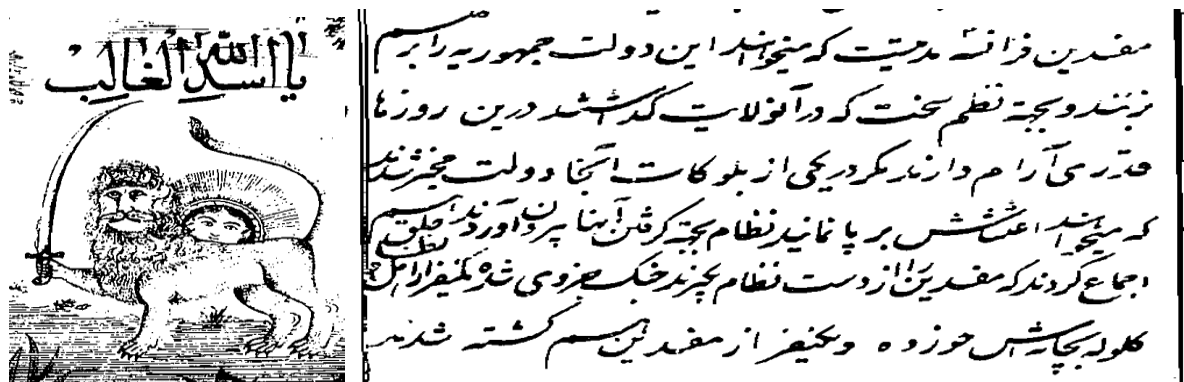 یا اسد الله الغالب
مفسدین فرانسه مدتیست که میخواهند این دولت جمهوریه را برهم
بزنند و بجهة نظم سخت که در آنولایت گذاشتند درین روزها
قدری آرام دارند مگر در یکی از بلوکات آنجا دولت مخبر شدند
که میخواهند اغتشاش برپا نمایند نظام بجهة گرفتن آنها بیرون آوردند خلق هم
اجماع کردند که مفسدین را از دست نظام بگیرند جنگ جزوی شده یکنفر از اهل نظام
گلوله بچانه‌اش خورده و یکنفر از مفسدین هم کشته شدند